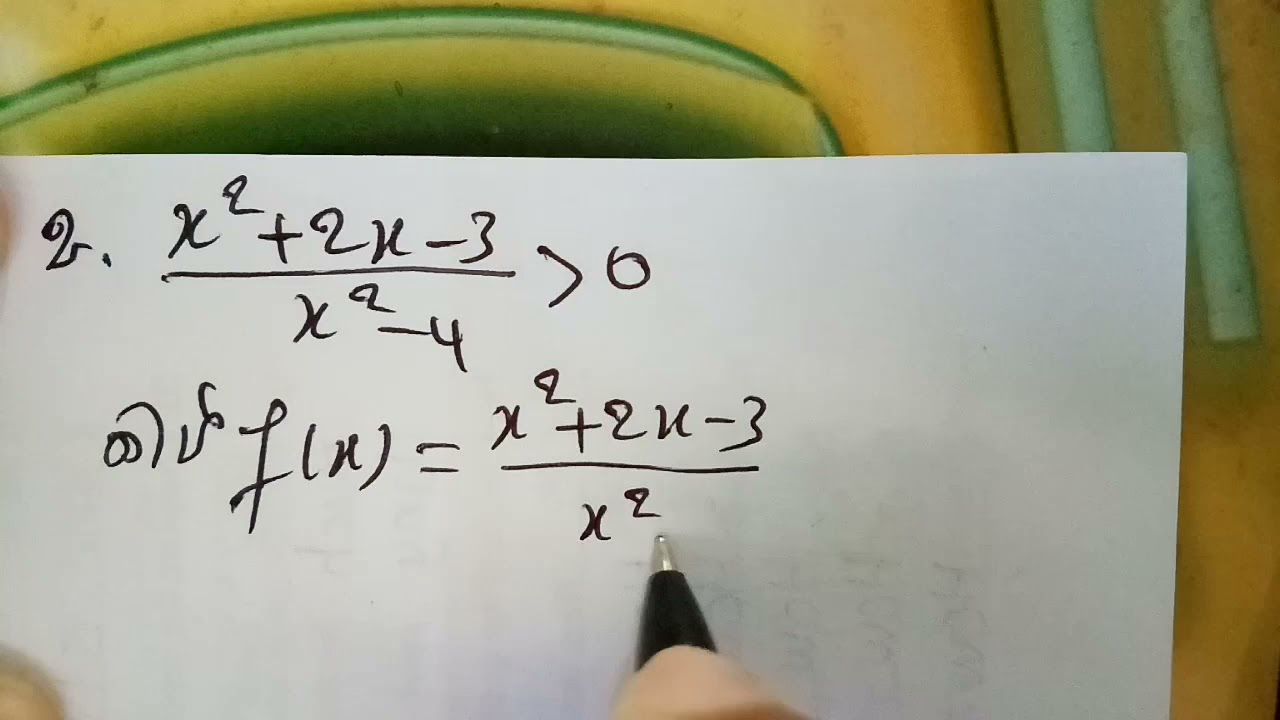 2. x²+2x-3 / x²-4 > 0
f(x) = x²+2x-3 / x²